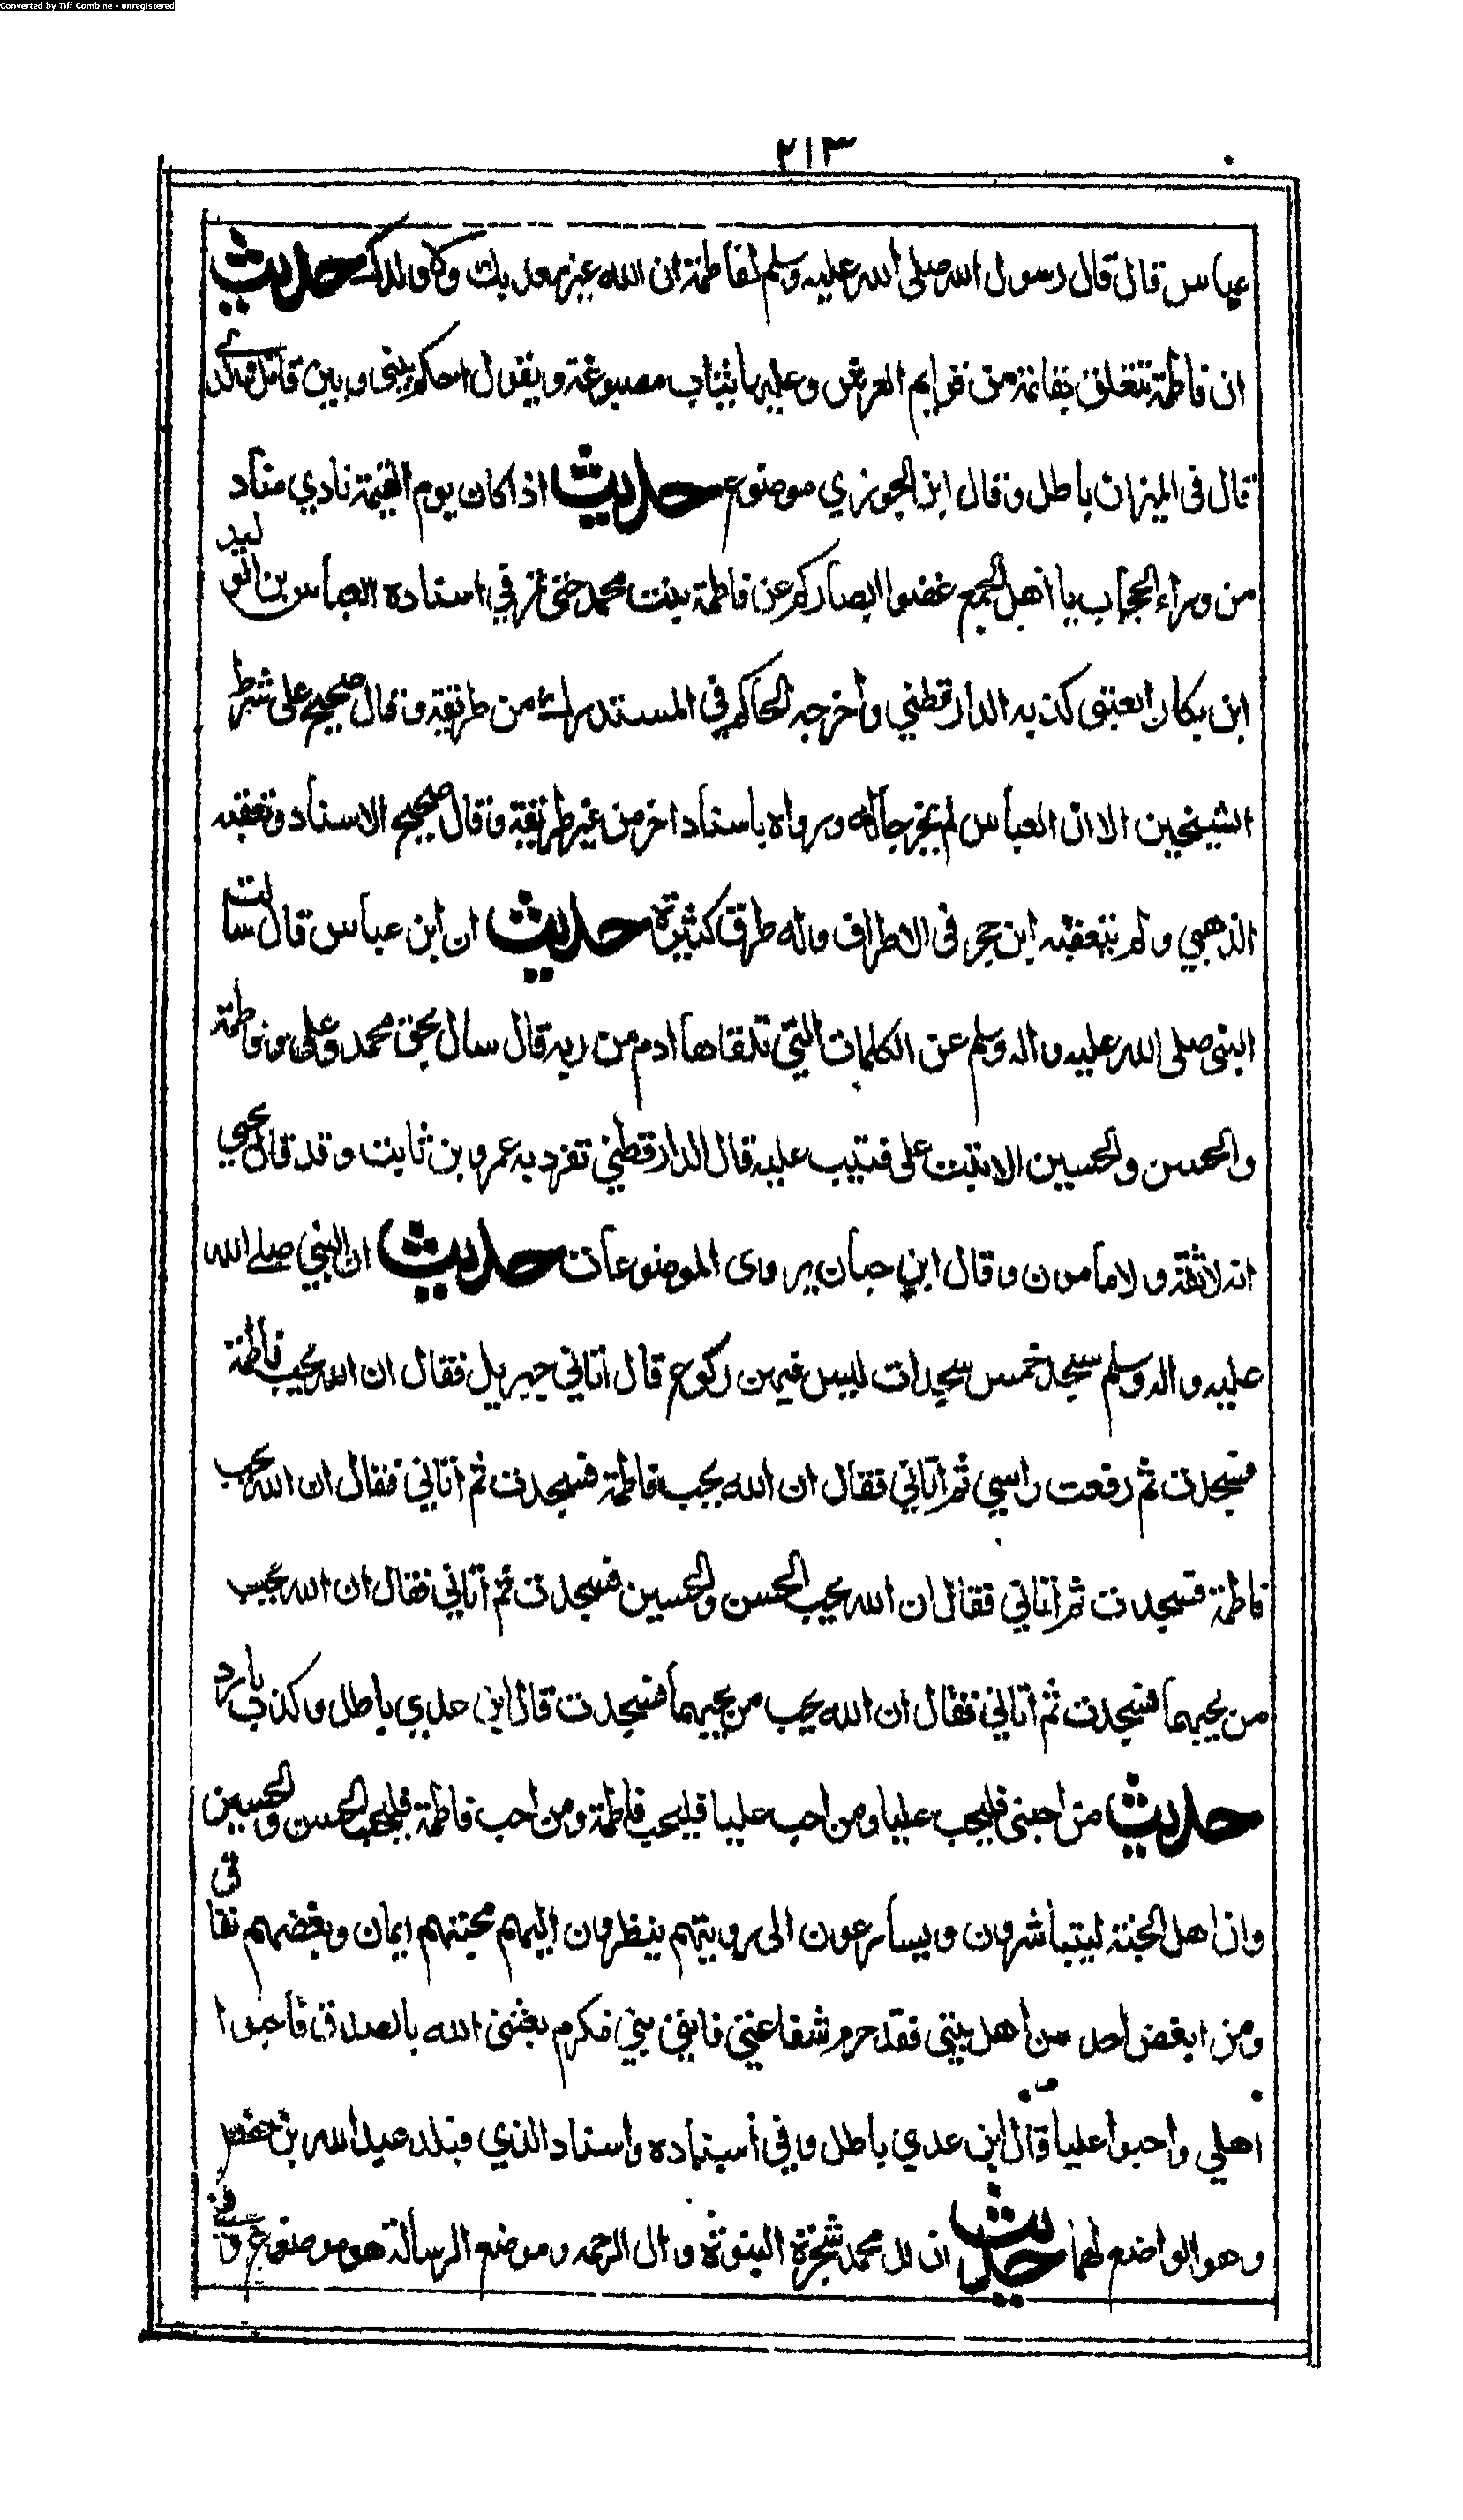 Converted by Tiff Combine - unregistered
٢١٣
عباس قال قال رسول الله صلى الله عليه وسلم لفاطمة ان الله غير معذبك ولا ولدك حديث
ان فاطمة تتعلق بقائمة من قوايم العرش وعليها ثياب مصبوغة ويقول احكم بيني وبين قاتل ولدي
قال في الميزان باطل وقال ابن الجوزي موضوع حديث اذا كان يوم القيمة نادي مناد
من وراء الحجاب يا اهل الجمع غضوا ابصاركم عن فاطمة بنت محمد حتى تمر في اسناده العباس بن الوليد
ابن بكار كذبه الدارقطني واخرجه الحاكم في المستدرك من طريقه وقال صحيح على شرط
الشيخين الا ان العباس لم يخرجا له ورواه باسناد اخر من غير طريقه وقال صحيح الاسناد وتعقبه
الذهبي ولم يتعقبه ابن حجر في الاطراف وله طرق كثيرة حديث ان ابن عباس قال سالت
النبي صلى الله عليه واله وسلم عن الكلمات التي تلقاها ادم من ربه قال سال بحق محمد وعلي وفاطمة
والحسن والحسين الا تبت علي فتيب عليه قال الدارقطني تفرد به عمرو بن ثابت وقد قال يحيي
انه لا ثقة ولا مامون وقال ابن حبان يروى الموضوعات حديث ان النبي صلى الله
عليه واله وسلم سجد خمس سجدات ليس فيهن ركوع قال اتاني جبريل فقال ان الله يحب فاطمة
فسجدت ثم رفعت راسي ثم اتاني فقال ان الله يحب فاطمة فسجدت ثم اتاني فقال ان الله يحب
فاطمة فسجدت ثم اتاني فقال ان الله يحب الحسن والحسين فسجدت ثم اتاني فقال ان الله يحب
من يحبهما فسجدت ثم اتاني فقال ان الله يحب من يحبهما فسجدت قال ابن عدي باطل وكذب بارد
حديث من احبني فليحب عليا ومن احب عليا فليحب فاطمة ومن احب فاطمة فليحب الحسن والحسين
وان اهل الجنة ليتباشرون ويسارعون الى رويتهم ينظرون اليهم محبتهم ايمان وبغضهم نفاق
ومن ابغض احد من اهل بيتي فقد حرم شفاعتي فانني نبي مكرم بعثني الله بالصدق فاحبوا
اهلي واحبوا عليا قال ابن عدي باطل وفي اسناده واسناد الذي قبله عبد الله بن حفص
وهو الواضع لهما حديث ان ال محمد شجرة النبوة وال الرحمه وموضع الرسالة هو موضوع وفي